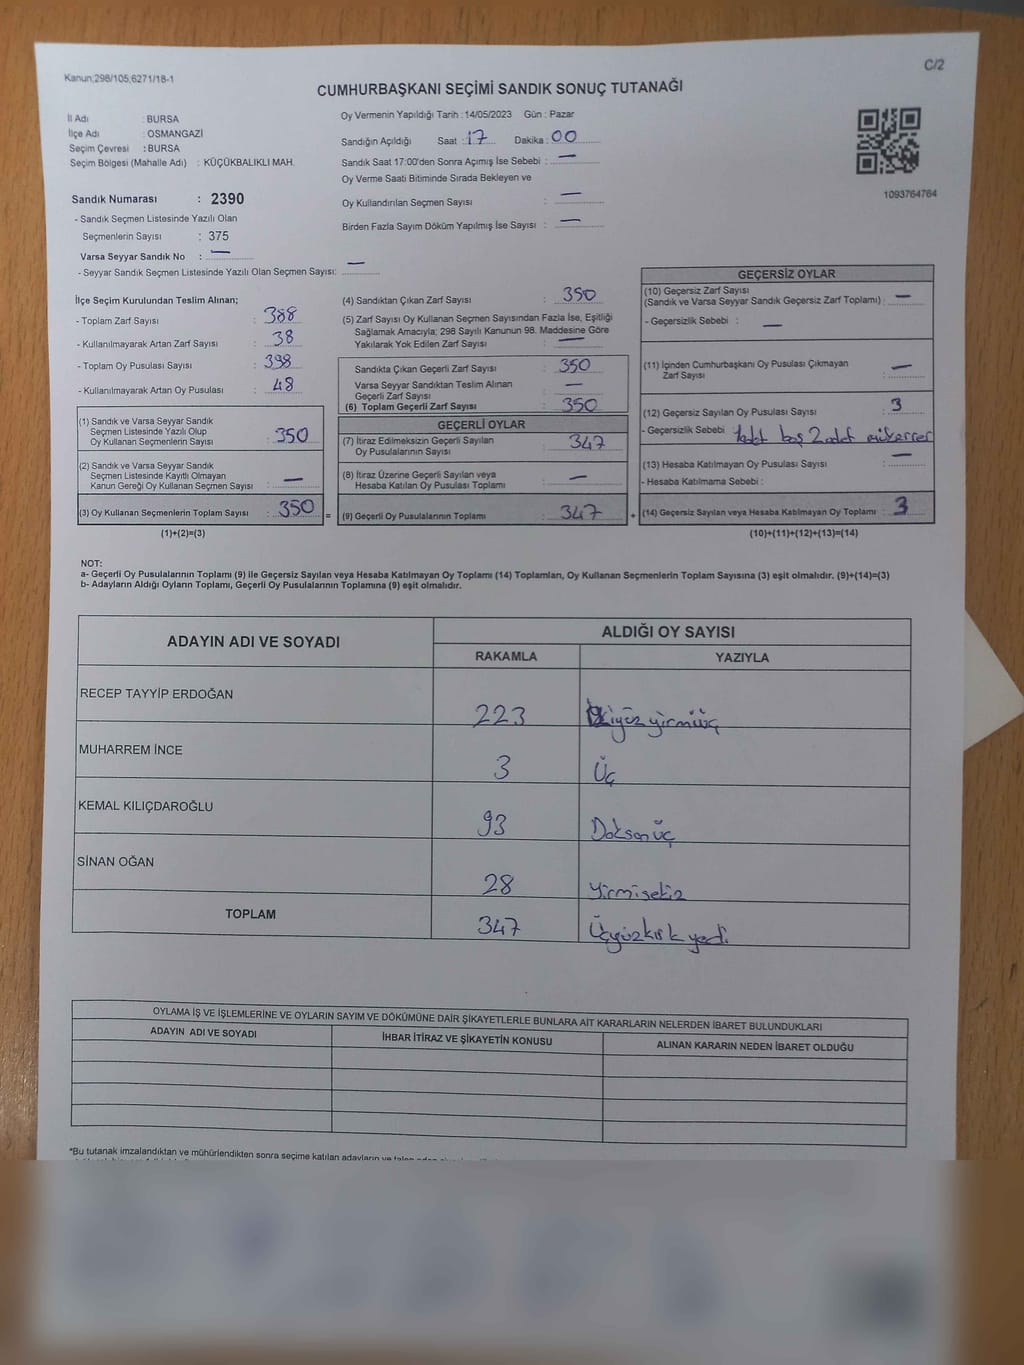 Kanun;298/105;6271/18-1
C/2
CUMHURBAŞKANI SEÇİMİ SANDIK SONUÇ TUTANAĞI
İl Adı : BURSA
İlçe Adı : OSMANGAZİ
Seçim Çevresi : BURSA
Seçim Bölgesi (Mahalle Adı) : KÜÇÜKBALIKLI MAH.
Sandık Numarası : 2390
- Sandık Seçmen Listesinde Yazılı Olan
Seçmenlerin Sayısı : 375
Varsa Seyyar Sandık No : —
- Seyyar Sandık Seçmen Listesinde Yazılı Olan Seçmen Sayısı: —
Oy Vermenin Yapıldığı Tarih : 14/05/2023 Gün : Pazar
Sandığın Açıldığı Saat : 17 Dakika : 00
Sandık Saat 17:00'den Sonra Açımış İse Sebebi : —
Oy Verme Saati Bitiminde Sırada Bekleyen ve
Oy Kullandırılan Seçmen Sayısı : —
Birden Fazla Sayım Döküm Yapılmış İse Sayısı : —
1093764764
İlçe Seçim Kurulundan Teslim Alınan;
- Toplam Zarf Sayısı : 388
- Kullanılmayarak Artan Zarf Sayısı : 38
- Toplam Oy Pusulası Sayısı : 398
- Kullanılmayarak Artan Oy Pusulası : 48
(1) Sandık ve Varsa Seyyar Sandık
Seçmen Listesinde Yazılı Olup
Oy Kullanan Seçmenlerin Sayısı : 350
(2) Sandık ve Varsa Seyyar Sandık
Seçmen Listesinde Kayıtlı Olmayan
Kanun Gereği Oy Kullanan Seçmen Sayısı : —
(3) Oy Kullanan Seçmenlerin Toplam Sayısı : 350 =
(1)+(2)=(3)
(4) Sandıktan Çıkan Zarf Sayısı : 350
(5) Zarf Sayısı Oy Kullanan Seçmen Sayısından Fazla İse, Eşitliği
Sağlamak Amacıyla; 298 Sayılı Kanunun 98. Maddesine Göre
Yakılarak Yok Edilen Zarf Sayısı : —
Sandıkta Çıkan Geçerli Zarf Sayısı : 350
Varsa Seyyar Sandıktan Teslim Alınan
Geçerli Zarf Sayısı : —
(6) Toplam Geçerli Zarf Sayısı : 350
GEÇERLİ OYLAR
(7) İtiraz Edilmeksizin Geçerli Sayılan
Oy Pusulalarının Sayısı : 347
(8) İtiraz Üzerine Geçerli Sayılan veya
Hesaba Katılan Oy Pusulası Toplamı : —
(9) Geçerli Oy Pusulalarının Toplamı : 347 +
GEÇERSİZ OYLAR
(10) Geçersiz Zarf Sayısı
(Sandık ve Varsa Seyyar Sandık Geçersiz Zarf Toplamı) : —
- Geçersizlik Sebebi : —
(11) İçinden Cumhurbaşkanı Oy Pusulası Çıkmayan
Zarf Sayısı : —
(12) Geçersiz Sayılan Oy Pusulası Sayısı : 3
- Geçersizlik Sebebi : 1adet boş 2adet mükerrer
(13) Hesaba Katılmayan Oy Pusulası Sayısı : —
- Hesaba Katılmama Sebebi :
(14) Geçersiz Sayılan veya Hesaba Katılmayan Oy Toplamı : 3
(10)+(11)+(12)+(13)=(14)
NOT:
a- Geçerli Oy Pusulalarının Toplamı (9) ile Geçersiz Sayılan veya Hesaba Katılmayan Oy Toplamı (14) Toplamları, Oy Kullanan Seçmenlerin Toplam Sayısına (3) eşit olmalıdır. (9)+(14)=(3)
b- Adayların Aldığı Oyların Toplamı, Geçerli Oy Pusulalarının Toplamına (9) eşit olmalıdır.
ADAYIN ADI VE SOYADI
ALDIĞI OY SAYISI
RAKAMLA YAZIYLA
RECEP TAYYİP ERDOĞAN 223 İkiyüzyirmiüç
MUHARREM İNCE 3 Üç
KEMAL KILIÇDAROĞLU 93 Doksanüç
SİNAN OĞAN 28 Yirmisekiz
TOPLAM 347 Üçyüzkırkyedi
OYLAMA İŞ VE İŞLEMLERİNE VE OYLARIN SAYIM VE DÖKÜMÜNE DAİR ŞİKAYETLERLE BUNLARA AİT KARARLARIN NELERDEN İBARET BULUNDUKLARI
ADAYIN ADI VE SOYADI İHBAR İTİRAZ VE ŞİKAYETİN KONUSU ALINAN KARARIN NEDEN İBARET OLDUĞU
*Bu tutanak imzalandıktan ve mühürlendikten sonra seçime katılan adayların ve